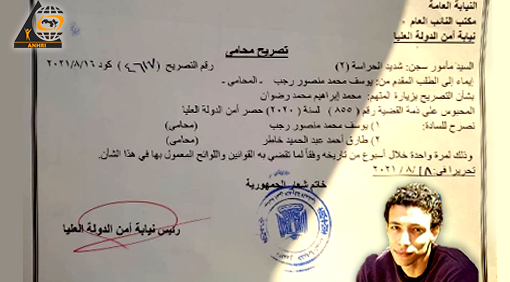 ANHRI
النيابة العامة
مكتب النائب العام
نيابة أمن الدولة العليا
تصريح محامى
السيد مأمور سجن: شديد الحراسة (٢) رقم التصريح (٤٦١٧) كود ٢٠٢١/٨/١٦
إيماء إلى الطلب المقدم من: يوسف محمد منصور رجب - المحامي -
بشأن التصريح بزيارة المتهم: محمد إبراهيم محمد رضوان
المحبوس على ذمة القضية رقم (٨٥٥) لسنة (٢٠٢٠) حصر أمن الدولة العليا
نصرح للسادة: ١) يوسف محمد منصور رجب (محامى)
٢) طارق أحمد عبد الحميد خاطر (محامى)
وذلك لمرة واحدة خلال أسبوع من تاريخه وفقاً لما تقضي به القوانين واللوائح المعمول بها في هذا الشأن.
تحريرا في: ١٨ / ٨ / ٢٠٢١
خاتم شعار الجمهورية
رئيس نيابة أمن الدولة العليا